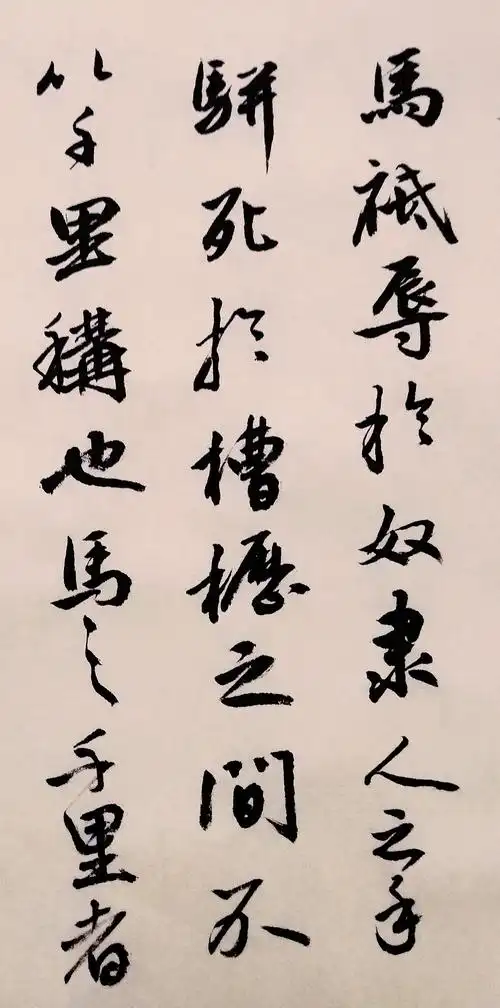 馬祗辱於奴隸人之手
駢死於槽櫪之間不
以千里稱也馬之千里者